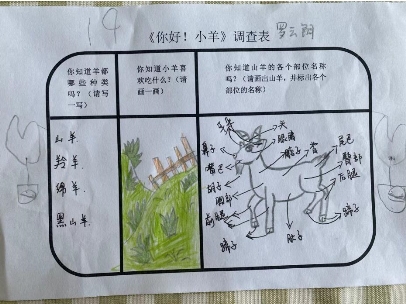 14
《你好！小羊》调查表
你知道羊都
哪些种类
吗？（请写
一写）
你知道小羊喜
欢吃什么？（请
画一画）
你知道山羊的各个部位名称
吗？（请画出山羊，并标出各个
部位的名称）
山羊
羚羊
绵羊
黑山羊
头
眼睛
鼻子
嘴巴
胡子
脖子
背
尾巴
臀部
后腿
胸部
前腿
蹄子
肚子
蹄子